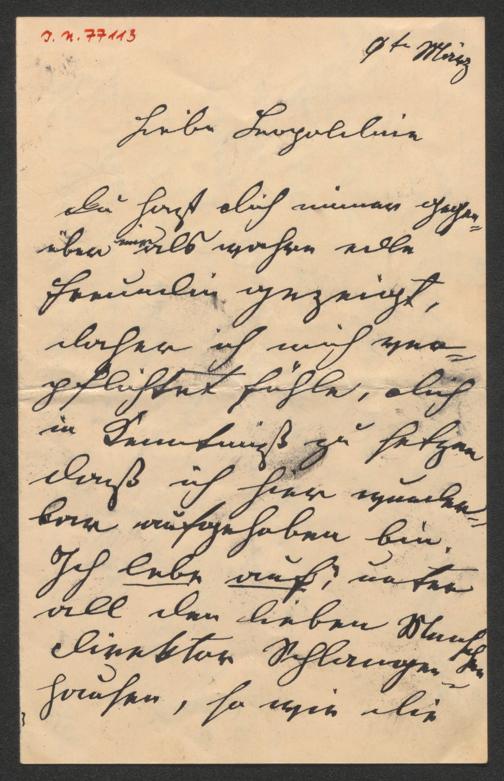 J. N. 77113
März
Liebe Leopoldine
Du hast dich immer gegen-
über mir als wahre edle
Freundin gezeigt,
daher ich mich ver-
pflichtet fühle, dich
in Kenntniß zu setzen
daß ich hier wunder-
bar aufgehoben bin.
Ich lebe auf, unter
all den lieben Menschen
Direktor Schlangen-
hausen, so wie die